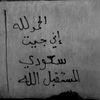 الحمدلله
إني جيت
سعودي
المستقبل الله